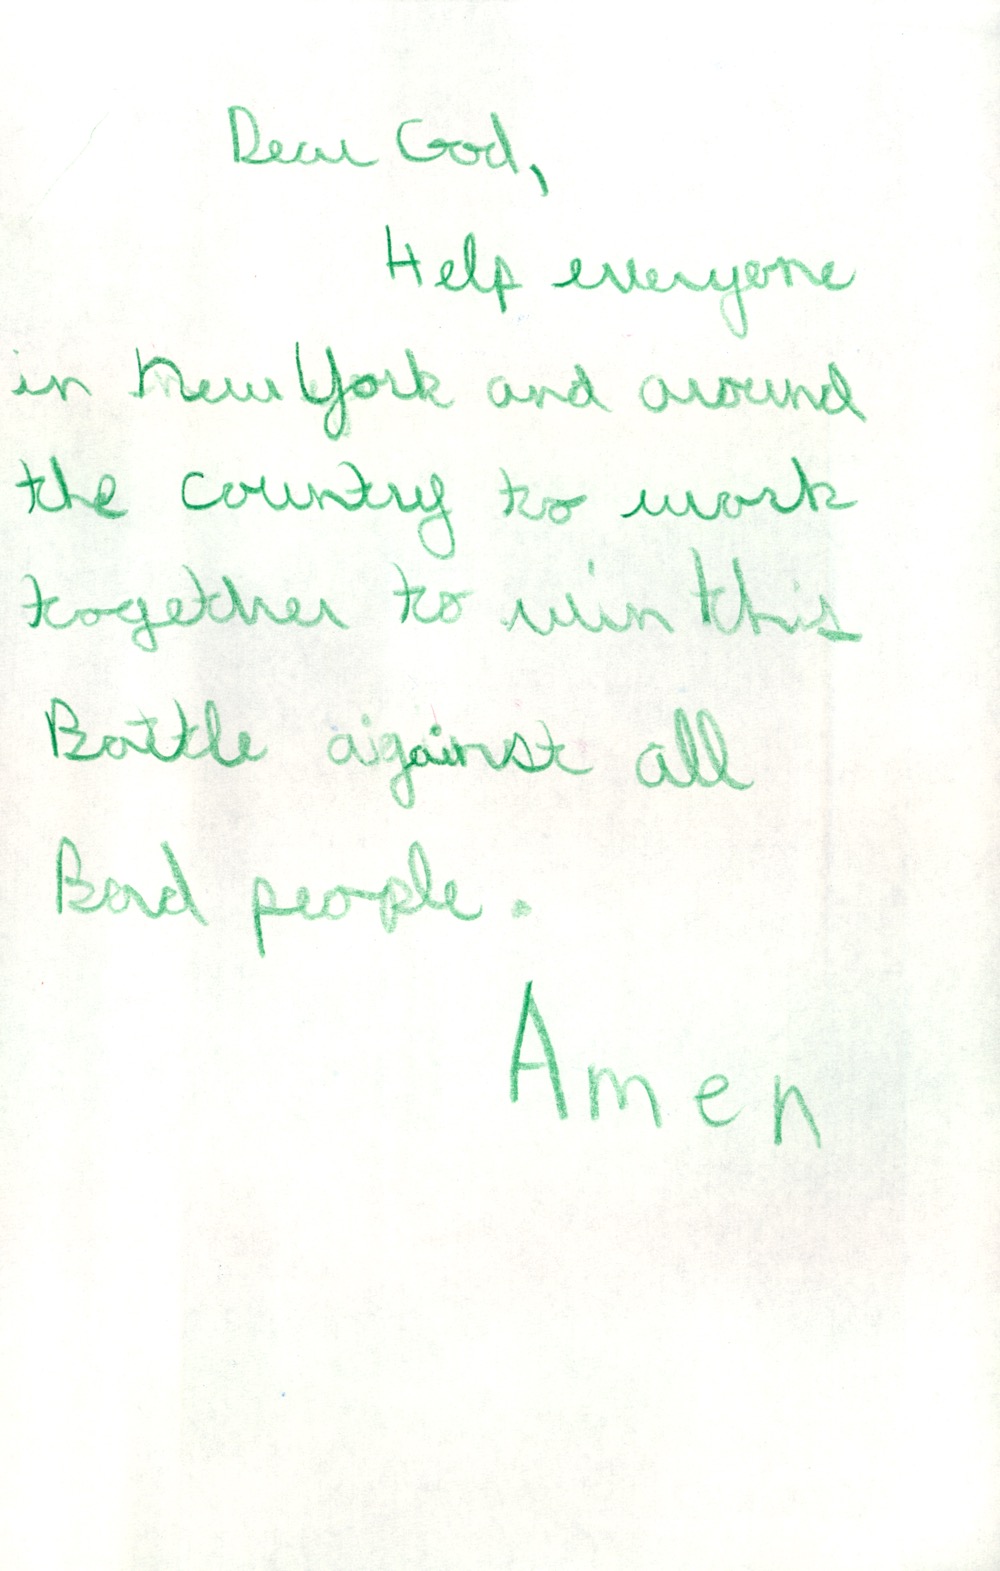 Dear God,
Help everyone
in New York and around
the country to work
together to win this
Battle against all
Bad people.
Amen